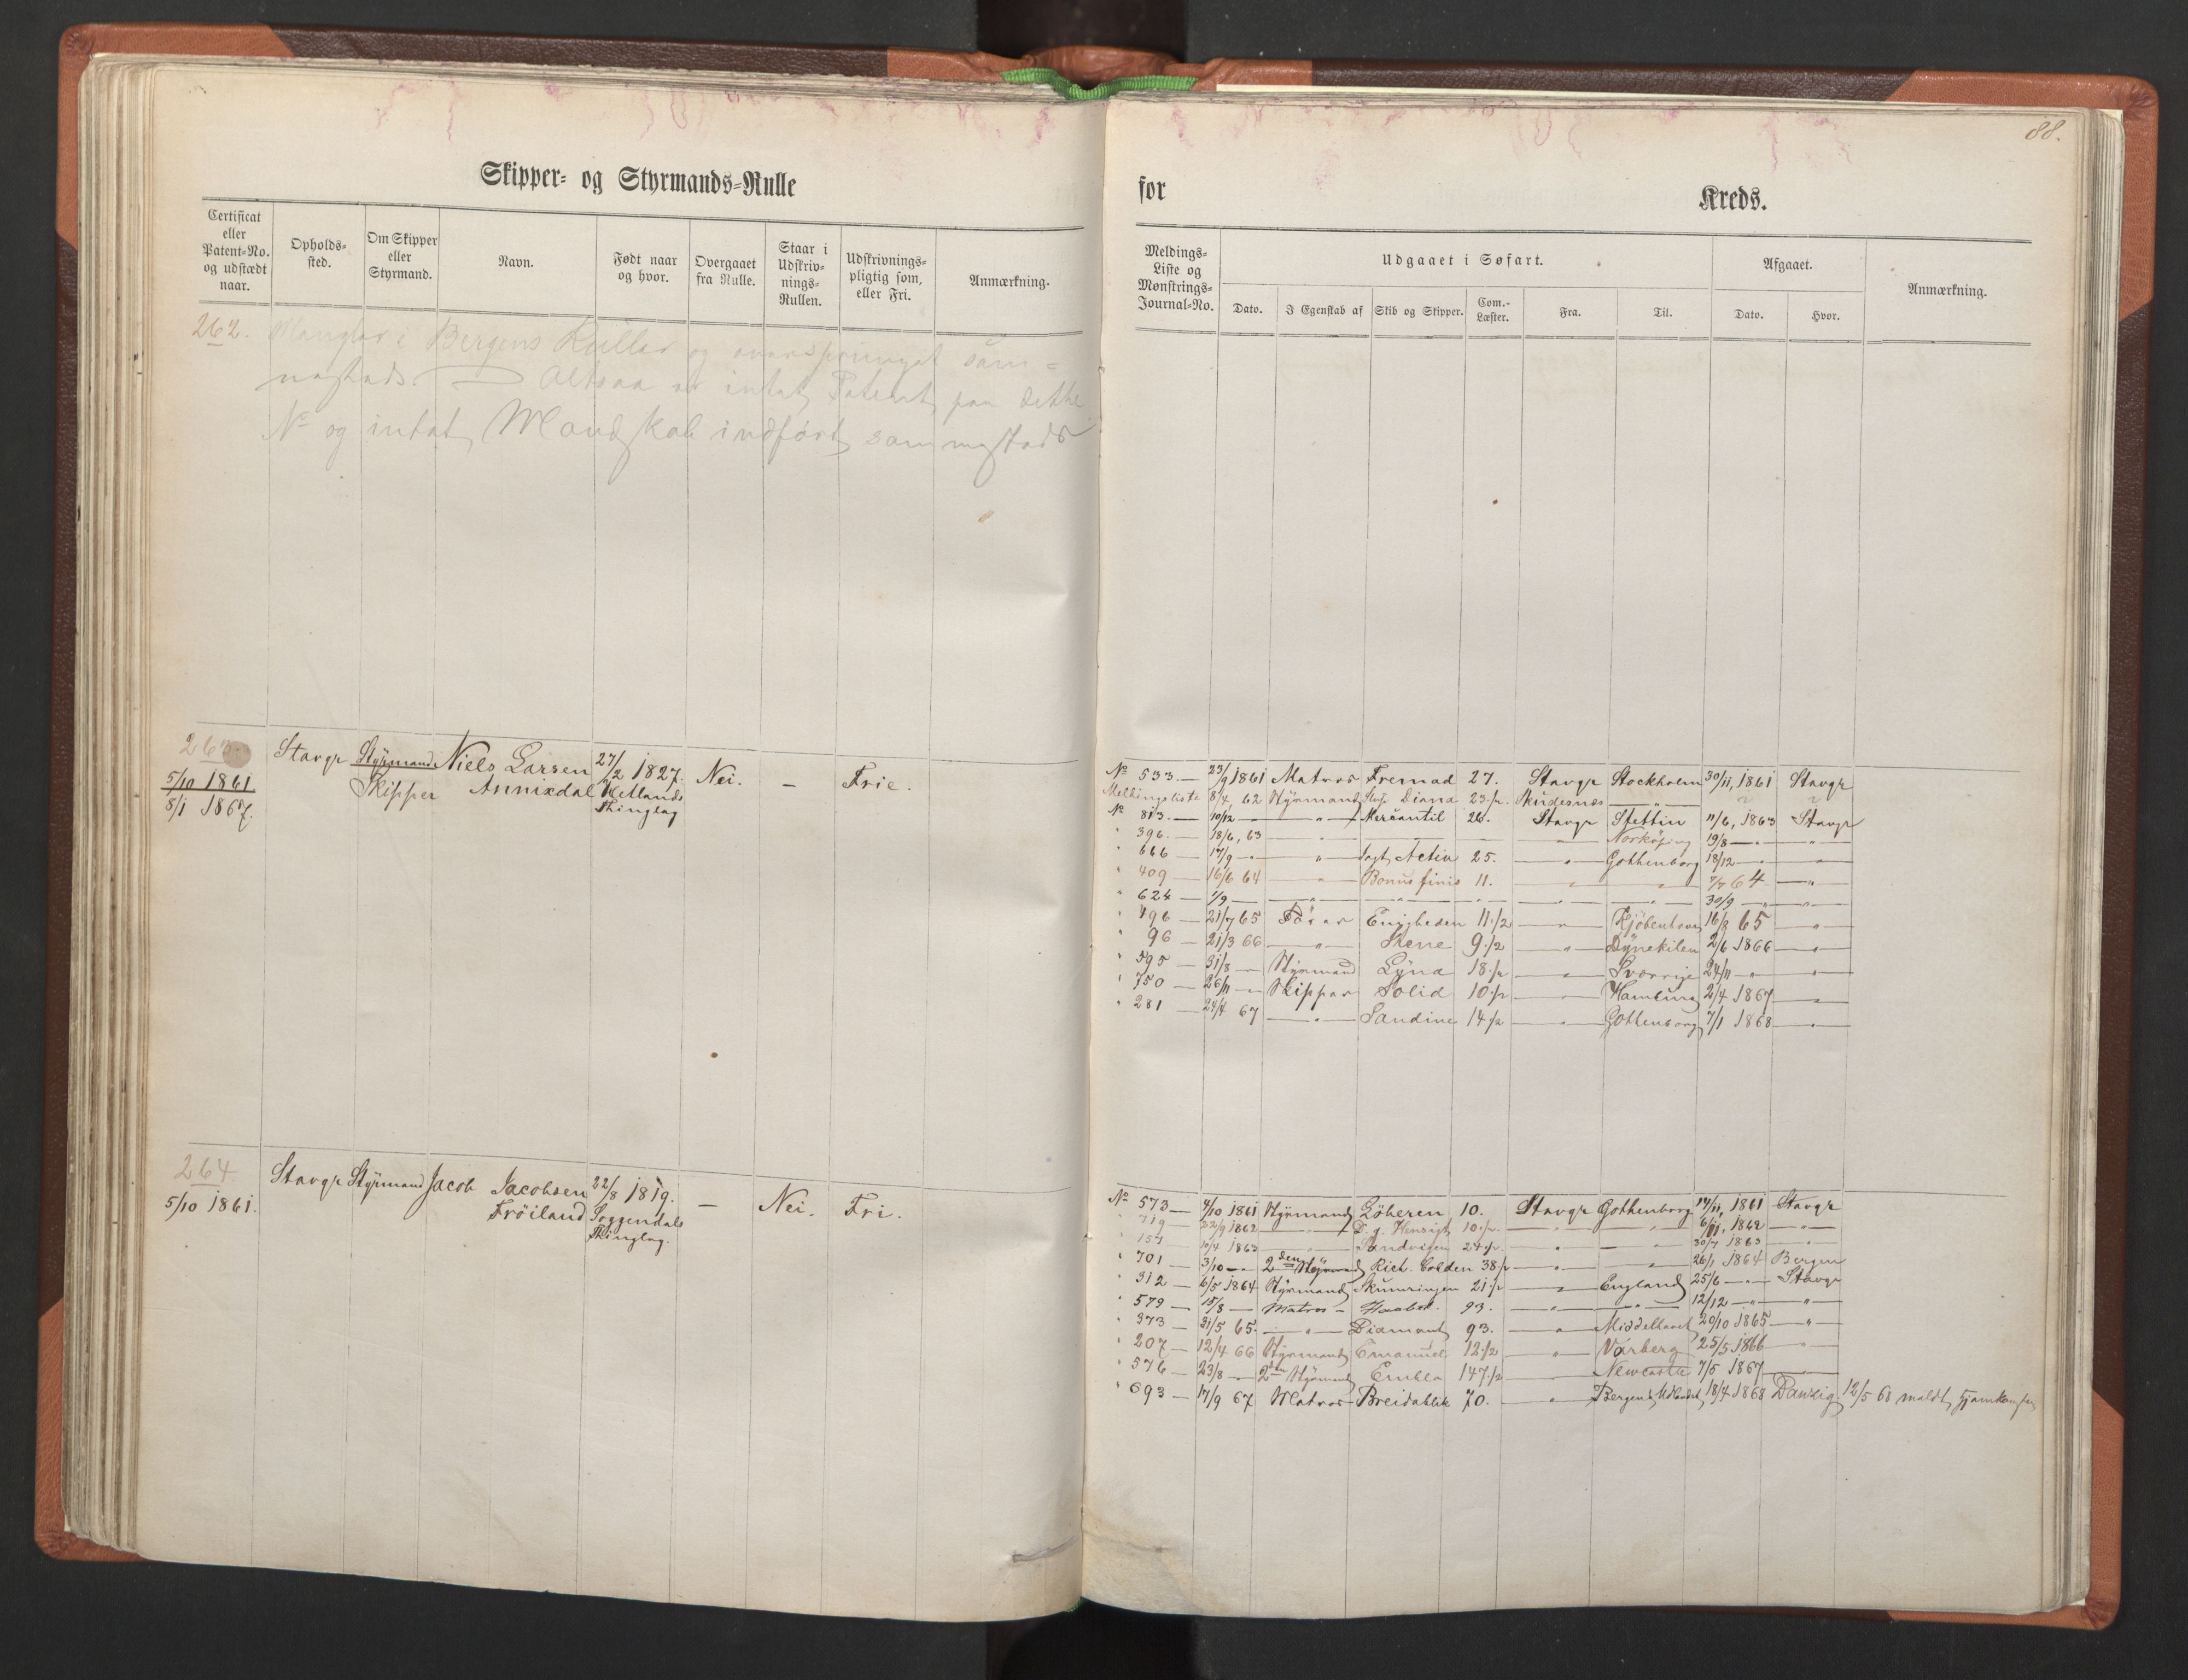 88.
Skipper- og Styrmands-Rulle
for
Kreds.
Certificat eller Patent-No. og udstædt naar.
Opholds-sted.
Om Skipper eller Styrmand.
Navn.
Født naar og hvor.
Overgaaet fra Rulle.
Staar i Udskriv-nings-Rullen.
Udskrivnings-pligtig som, eller Fri.
Anmærkning.
Meldings-Liste og Mønstrings-Journal-No.
Udgaaet i Søfart.
Afgaaet.
Anmærkning.
Dato.
I Egenskab af
Skib og Skipper.
Com.-Læster.
Fra.
Til.
Dato.
Hvor.
262. Mangler i Bergens Ruller og oversprunget sam=
mesteds — Altsaa er intet Patent paa dette
No og intet Mandskab indført sammesteds
263. Stavgr Styrmand Niels Larsen 27/2 1827. Nei. — Frie.
5/10 1861 Skipper Annixdal Hetlands
8/1 1867. Thinglag
No 533 — 23/9 1861 Matros Fremad 27. Stavgr Stockholm 30/11, 1861 Stavgr
Meldingsliste 8/4, 62 Styrmand Diana 23 1/2. Skudesnæs — " —
No 813. — 10/12 — " — Mercantil 26. Stavgr Stettin 11/6, 1863 Stavgr
" 396. — 18/6, 63 — " — Norköping 19/8 — " — " —
" 666 — 17/9 — " — " — Jagt Activ 25. — " — Gothenborg 18/12 — " — " —
" 409 — 16/6 64 — " — Bonus finis 11. — " — " — 7/7 64 — " —
" 624 — 1/9 — " — " — " — " — " — 30/9 — " — " —
" 496 — 21/7 65 Fører Enigheden 11 1/2 — " — Kjöbenhavn 16/8 65 — " —
" 96 — 21/3 66 — " — Irene 9 1/2 — " — Dynekilen 2/6 1866 — " —
" 595 — 31/8 — Styrmand Lyna 18 1/2 — " — Sverrige 24/11 — " — " —
" 750 — 26/11 — Skipper Solid 10 1/2 — " — Hamburg 2/4 1867 — " —
" 281 — 24/4 67 — " — Sandine 14 1/2 — " — Gothenborg 7/1 1868 — " —
264 Stavgr Styrmand Jacob Jacobsen 22/8 1819. — Nei. Fri.
5/10 1861. Frøiland Soggendals
Thinglag.
No 573 — 4/10 1861 Styrmand 10. Stavgr Gothenborg 14/11, 1861 Stavgr
" 719 — 22/9 1862 — " — D. g. Hensigt 10 1/2. — " — " — 6/11, 1862 — " —
" 151 — 10/4 1863 — " — Sandvigen 24 1/2 — " — " — 30/7 1863 — " —
" 701 — 3/10 — " — 2den Styrmand Rich. Cobden 38 1/2 — " — " — 26/1 1864 Bergen
" 312 — 6/5 1864 Styrmand Skumringen 21 1/2 — " — England 25/6 — " — Stavgr
" 579 — 15/8 — Matros — Haabet 93. — " — " — 12/12 — " — " —
" 373 — 31/5 65. — " — Diamant 93. — " — Middelhavet 20/10 1865 — " —
" 207 — 12/4 66 Styrmand Emanuel 12 1/2 — " — Varberg 25/5 1866 — " —
" 576 — 23/8 — 2den Styrmand Embla 147 1/2 — Newcastle 7/5 1867 — " —
" 693 — 17/9 67 Matros Breidablik 70. — " — Bergen & 18/4 1868 Danzig 12/5 68 meldt hjemkommen